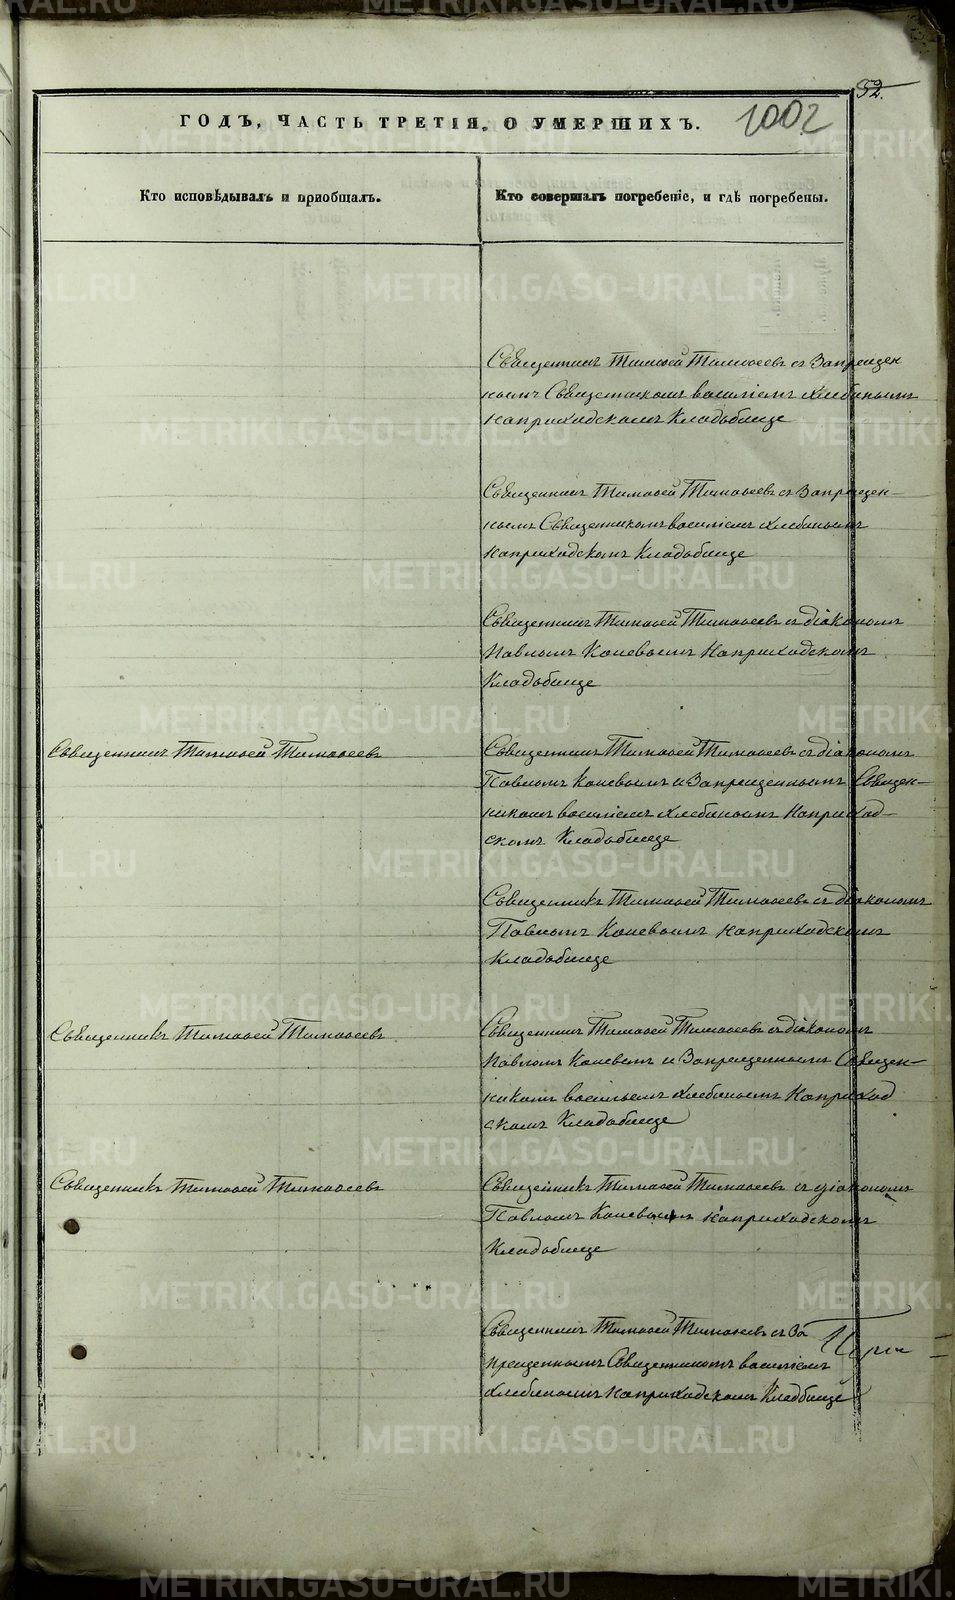 52.
ГОДЪ, ЧАСТЬ ТРЕТІЯ, О УМЕРШИХЪ.
1002
Кто исповѣдывалъ и пріобщалъ.
Кто совершалъ погребеніе, и гдѣ погребены.
Священникъ Тимофей Тимофеевъ съ Запрещен
нымъ Священникомъ Василіемъ Хлебинымъ
наприходскомъ Кладбище
Священникъ Тимофей Тимофеевъ съ Запрещен-
нымъ Священникомъ Василіемъ Хлебинымъ
наприходскомъ Кладбище
Священникъ Тимофей Тимофеевъ съ діакономъ
Павломъ Коневымъ наприходскомъ
Кладбище
Священникъ Тимофей Тимофеевъ
Священникъ Тимофей Тимофеевъ съ діакономъ
Павломъ Коневымъ и Запрещеннымъ Священ-
никомъ Василіемъ Хлебинымъ наприход-
скомъ Кладбище
Священникъ Тимофей Тимофеевъ съ діакономъ
Павломъ Коневымъ наприходскомъ
Кладбище
Священникъ Тимофей Тимофеевъ
Священникъ Тимофей Тимофеевъ съ діакономъ
Павломъ Коневымъ и Запрещеннымъ Священ-
никомъ Василіемъ Хлебинымъ наприход
скомъ Кладбище
Священникъ Тимофей Тимофеевъ
Священникъ Тимофей Тимофеевъ съ діакономъ
Павломъ Коневымъ наприходскомъ
Кладбище
Священникъ Тимофей Тимофеевъ съ За
прещеннымъ Священникомъ Василіемъ
Хлебинымъ наприходскомъ Кладбище
METRIKI.GASO-URAL.RU